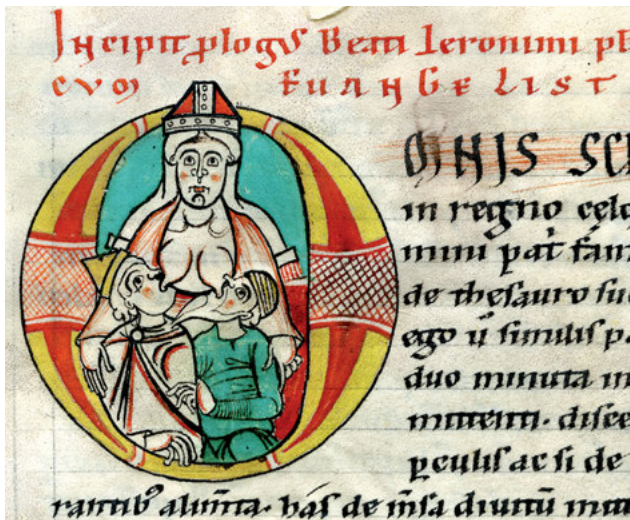 Incipit ꝓlogus Beati Ieronimi
EUANGELIST
OMNIS
in regno cęlo
mini pat̄ fam
de thesauro su
ego ū similis pa
duo minuta in
mittenti. disce
ꝑculis ac si de
rantibꝰ alim̄ta. has de m̄sa diuitū